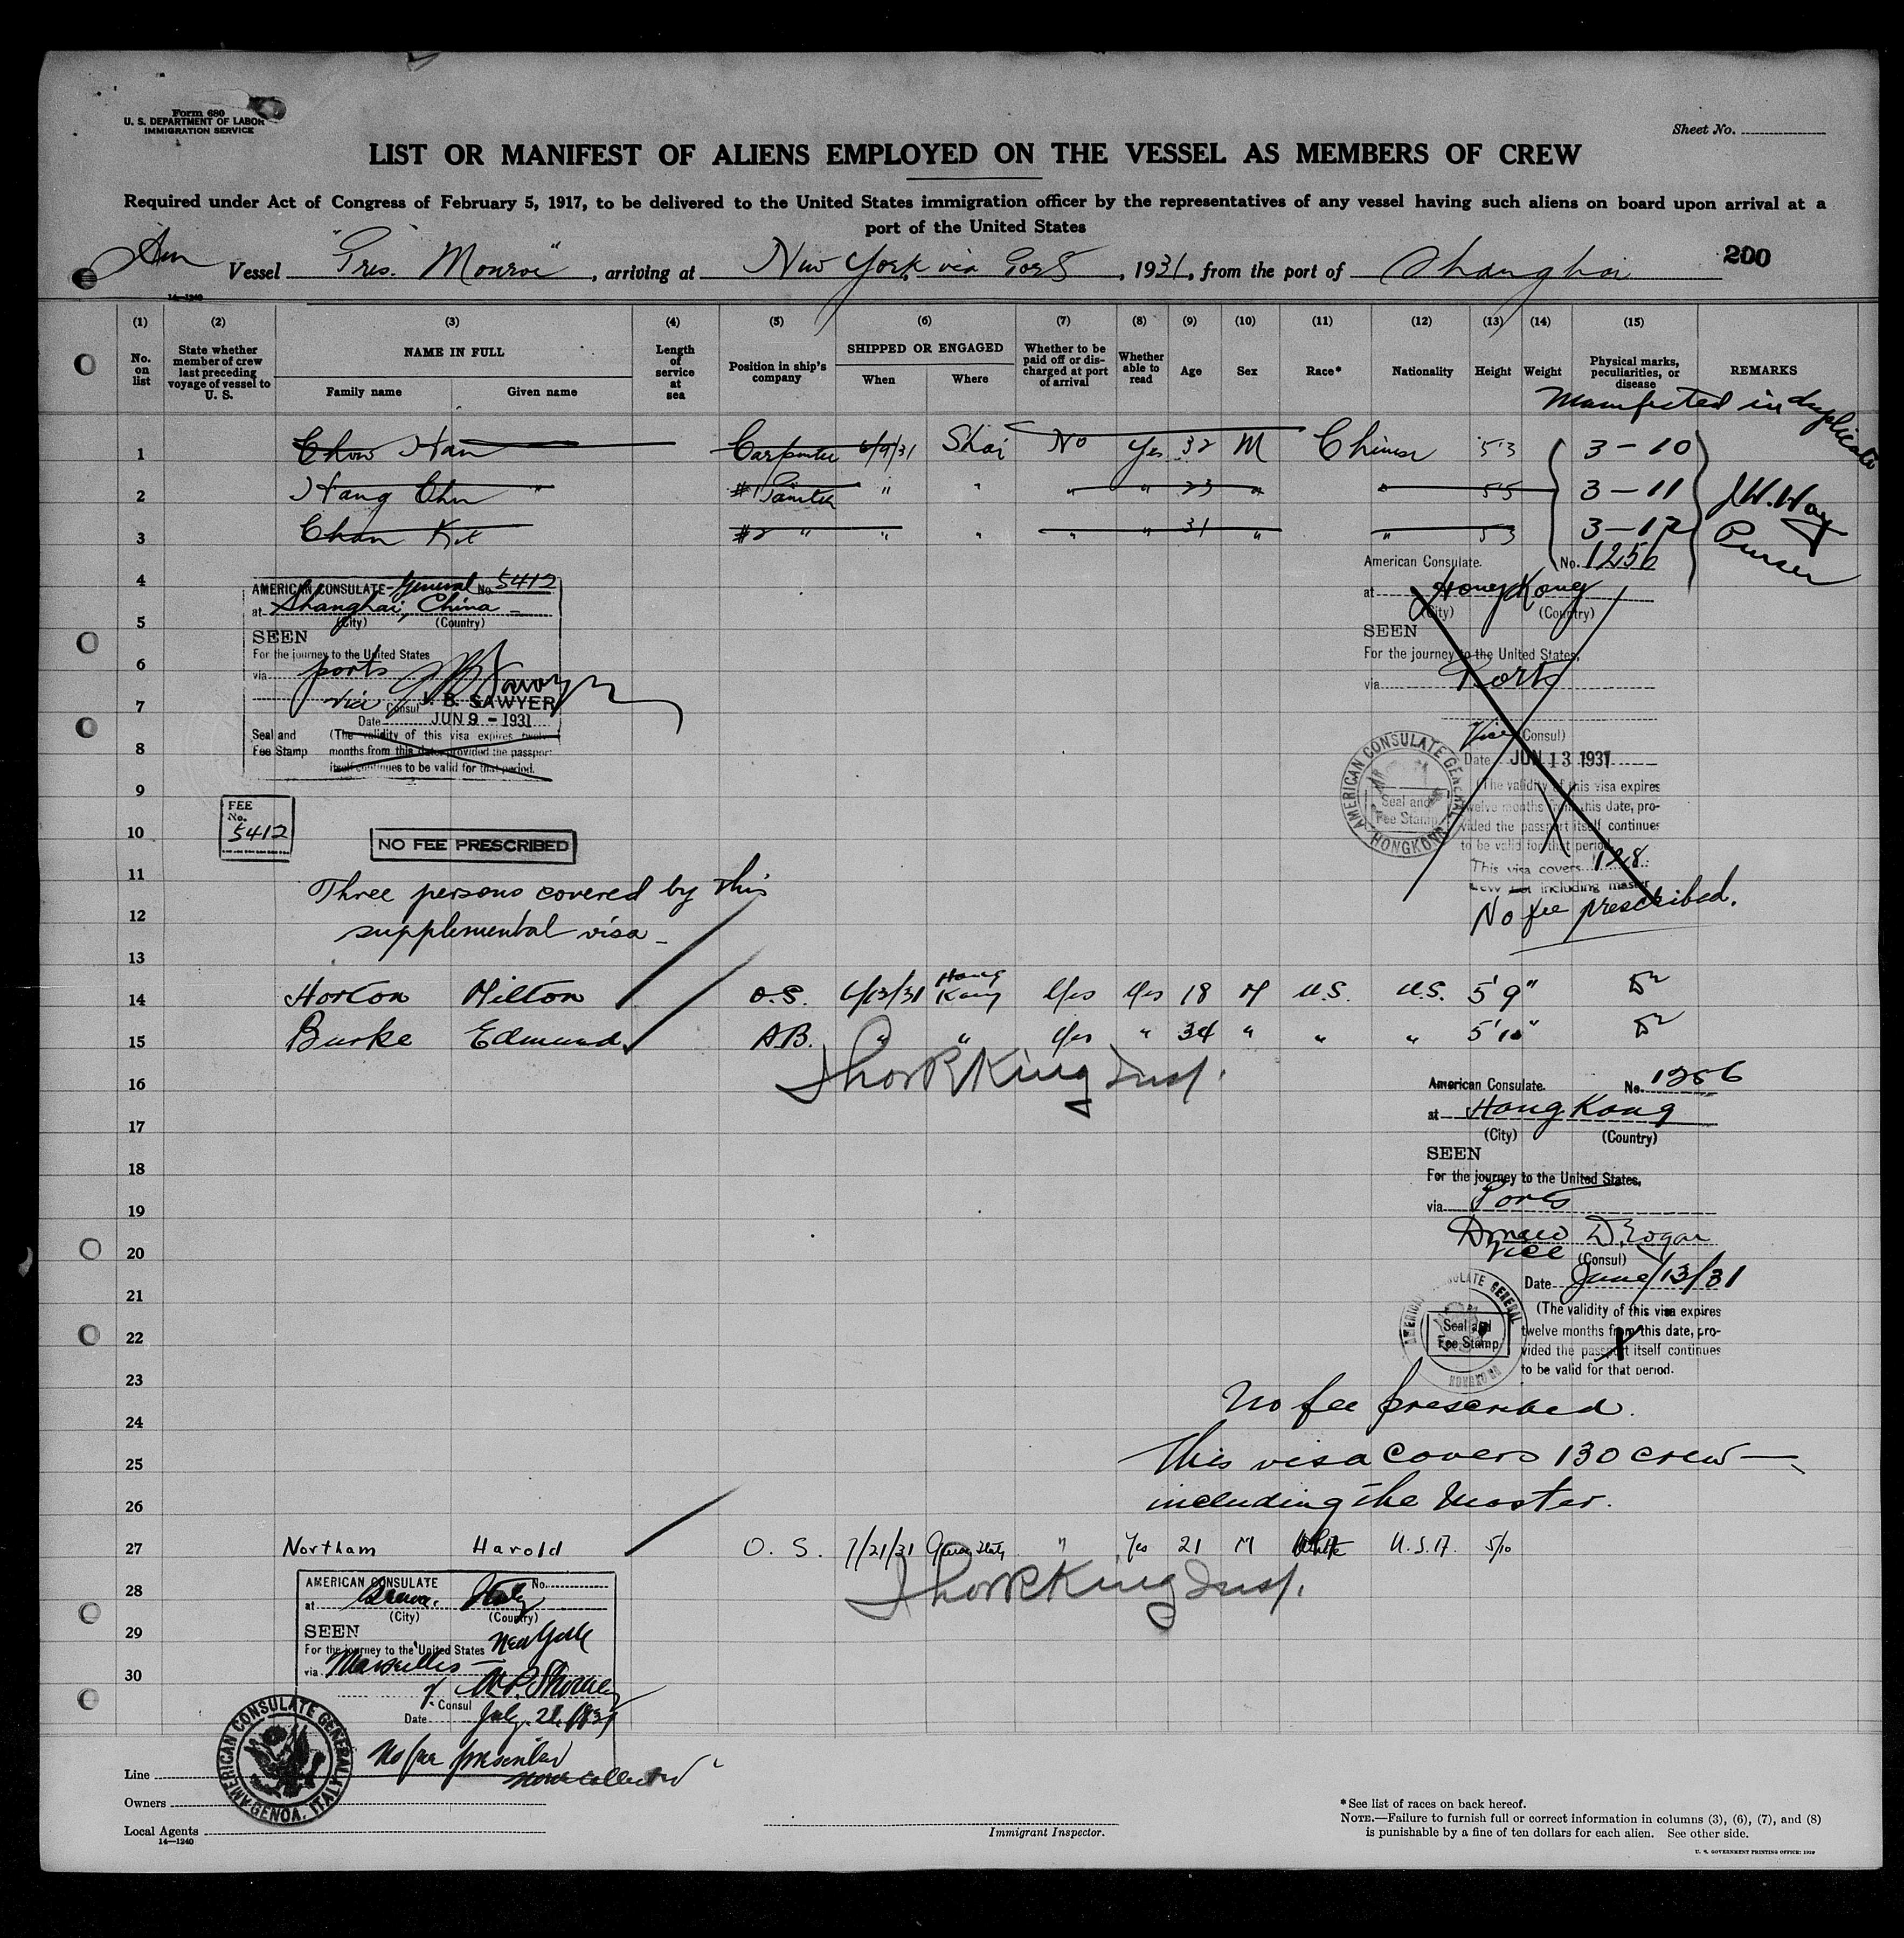 Form 680
U. S. DEPARTMENT OF LABOR
IMMIGRATION SERVICE
Sheet No.
LIST OR MANIFEST OF ALIENS EMPLOYED ON THE VESSEL AS MEMBERS OF CREW
Required under Act of Congress of February 5, 1917, to be delivered to the United States immigration officer by the representatives of any vessel having such aliens on board upon arrival at a
port of the United States
Am Vessel "Pres. Monroe", arriving at New York via Ports, 1931, from the port of Shanghai 200
14—1240
(1) (2) (3) (4) (5) (6) (7) (8) (9) (10) (11) (12) (13) (14) (15)
No. on list
State whether member of crew last preceding voyage of vessel to U. S.
NAME IN FULL
Family name Given name
Length of service at sea
Position in ship's company
SHIPPED OR ENGAGED
When Where
Whether to be paid off or discharged at port of arrival
Whether able to read
Age
Sex
Race*
Nationality
Height
Weight
Physical marks, peculiarities, or disease
REMARKS
Manifested in duplicate
1 Chow Han Carpenter 6/9/31 Shai No Yes 32 M Chinese 5'3 3-10
2 Hang Chu " #1 " " " " 23 " " 5'5 3-11
3 Chan Kit #2 " " " " " 31 " " 5'3 3-12
J.W. Way
Purser
4
5
6
7
8
9
10
11
12
13
AMERICAN CONSULATE General No. 5412
at Shanghai, China
(City) (Country)
SEEN
For the journey to the United States
via ports
Vice Consul J. B. SAWYER
Date JUN 9 - 1931
Seal and Fee Stamp
(The validity of this visa expires twelve
months from this date, provided the passport
itself continues to be valid for that period.
FEE
No.
5412
NO FEE PRESCRIBED
Three persons covered by this
supplemental visa
American Consulate. No. 1256
at Hong Kong
(City) (Country)
SEEN
For the journey to the United States,
via Ports
Vice (Consul)
Date JUN 13 1931
AMERICAN CONSULATE GENERAL
HONGKONG
Seal and
Fee Stamp
(The validity of this visa expires
twelve months from this date, pro-
vided the passport itself continues
to be valid for that period
This visa covers 128
crew including master
No fee prescribed.
14 Horton Milton O.S. 6/13/31 Hong Kong Yes Yes 18 M U.S. U.S. 5'9"
15 Burke Edmund A.B. " " Yes " 34 " " " 5'10"
16
17
18
19
20
21
22
23
24
25
26
King Insp.
American Consulate. No. 1256
at Hong Kong
(City) (Country)
SEEN
For the journey to the United States,
via Ports
Vice (Consul)
Date June/13/31
AMERICAN CONSULATE GENERAL
HONGKONG
Seal and
Fee Stamp
(The validity of this visa expires
twelve months from this date, pro-
vided the passport itself continues
to be valid for that period.
No fee prescribed.
This visa covers 130 crew
including the Master.
27 Northam Harold O. S. 7/21/31 Genoa Italy " Yes 21 M White U.S.A. 5/10
28
29
30
King Insp.
AMERICAN CONSULATE No.
at Genoa, Italy
(City) (Country)
SEEN
For the journey to the United States New York
via Marseilles
Consul
Date July 21, 1931
AMERICAN CONSULATE GENERAL
GENOA, ITALY
No fee prescribed
none collected
Line
Owners
Local Agents
14—1240
Immigrant Inspector.
*See list of races on back hereof.
NOTE.—Failure to furnish full or correct information in columns (3), (6), (7), and (8)
is punishable by a fine of ten dollars for each alien. See other side.
U. S. GOVERNMENT PRINTING OFFICE: 1929